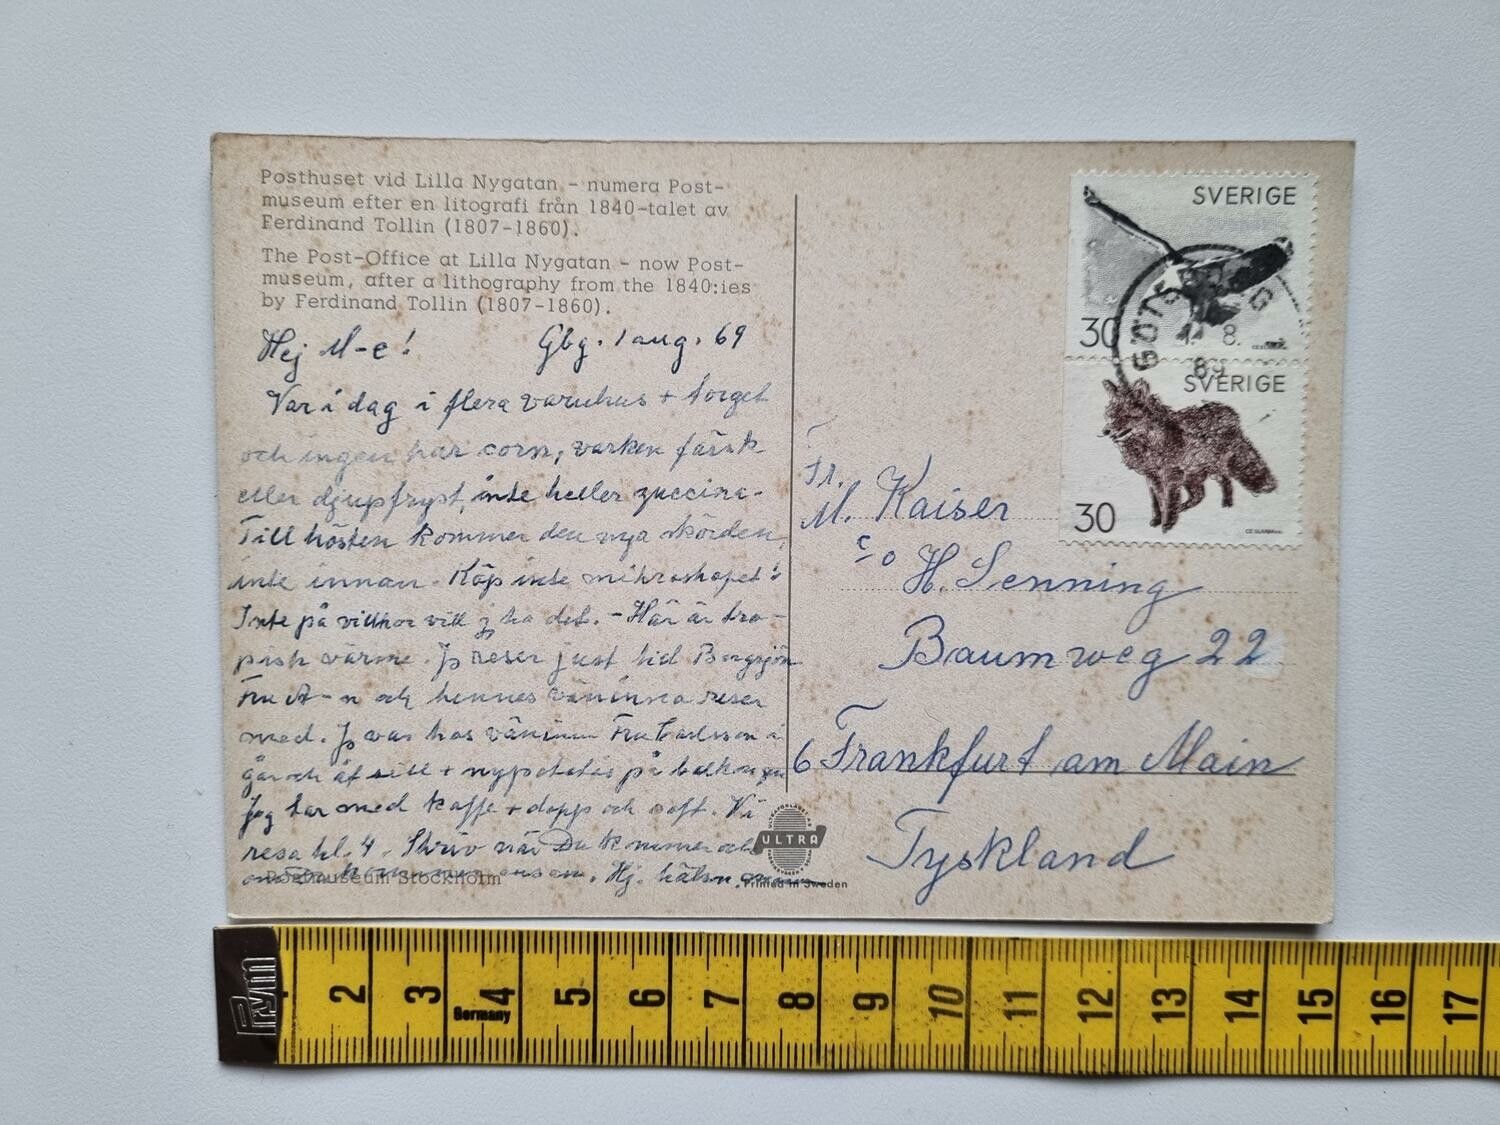 Posthuset vid Lilla Nygatan – numera Post-
museum efter en litografi från 1840-talet av
Ferdinand Tollin (1807-1860).
The Post-Office at Lilla Nygatan – now Post-
museum, after a lithography from the 1840:ies
by Ferdinand Tollin (1807-1860).
Hej M-e! Gbg. 1 aug. 69
Var i dag i flera varuhus + torget
och ingen har corn, varken färsk
eller djupfryst, inte heller zuccina.
Till hösten kommer den nya skörden,
inte innan. Köp inte mikroskopet!
Inte på villkor vill j ha det. – Här är tro-
pisk värme. Jg reser just till Bergsjön
Fru A-n och hennes väninna reser
med. Jg var hos väninn Fru Carlsson i
går och åt sill + nypotatis på balkongen
Jag tar med kaffe + dopp och saft. Vi
resa kl. 4. Skriv när Du kommer och
ensam. Hj. hälsn.
Postmuseum Stockholm
ULTRA
Printed in Sweden
SVERIGE
30
GÖTEBORG
1. 8.
69
SVERIGE
30
Fr.
M. Kaiser
c/o H. Senning
Baumweg 22
6 Frankfurt am Main
Tyskland
Prym
2 3 4 5 6 7 8 9 10 11 12 13 14 15 16 17
Germany